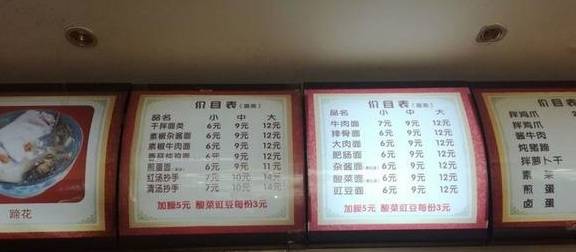 蹄花
价目表（面类）
品名 小 中 大
干拌面类 6元 9元 12元
素椒杂酱面 6元 9元 12元
素椒牛肉面 6元 9元 12元
6元 9元 12元
煎蛋面 6元 9元 11元
红汤抄手 7元 10元 14元
清汤抄手 7元 10元 14元
加臊5元 酸菜豇豆每份3元
价目表（面类）
品名 小 中 大
牛肉面 7元 9元 12元
排骨面 6元 9元 12元
大肉面 6元 9元 12元
肥肠面 6元 9元 12元
杂酱面 6元 9元 12元
酸菜面 6元 9元 12元
豇豆面 6元 9元 12元
加臊5元 酸菜豇豆每份3元
价目表
品名
拌鸡爪
卤鸡爪
酱牛肉
炖猪蹄
拌萝卜干
素菜
煎蛋
卤蛋